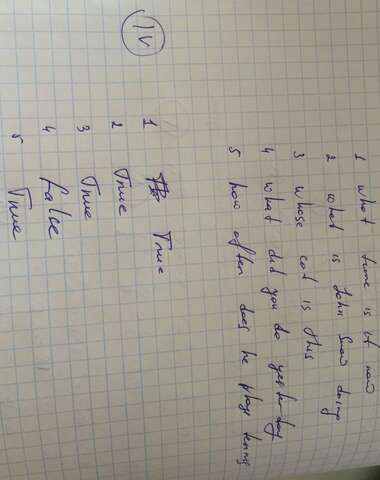 1 what time is it now
2 what is John Snow doing
3 whose cat is this
4 what did you do yesterday
5 how often does he plays tennis
IV
1 True
2 True
3 True
4 false
5 True